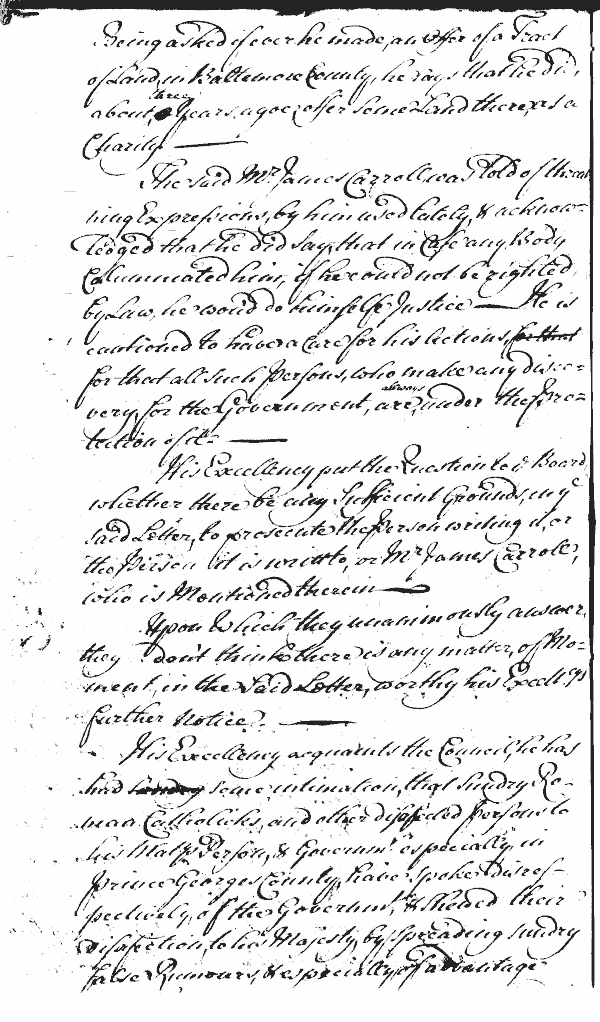 Being asked if ever he made, an offer of a Tract
of Land, in Baltemore County, he says that he did,
about, three years, agoe, offer some Land there, as a
Charity
The said Mr. James Carroll was told of threat
ning Expressions, by him used lately, & acknow-
ledged that he did say, that in Case any Body
Calumniated him, if he could not be righted
by Law, he wou'd do himself Justice — He is
cautioned to have a Care for his Actions, for that
for that all such Persons, who make any disco-
very, for the Government, are always under the Pro-
tection of it. —
His Excellency put the Question to ye Board,
whether there be any Sufficient Grounds, in ye
said Letter, to prosecute the Person writing it, or
the Person it is writt to, or Mr. James Carroll,
who is Mentioned therein —
Upon Which they unanimously answer,
they don't think there is any matter, of Mo-
ment, in the said Letter, worthy his Excellcys
further Notice. —
His Excellency acquaints the Council, he has
had sundry some intimation, that sundry Ro-
man Catholicks, and other disaffected Persons to
his Matys Person, & Governmt especially, in
Prince Georges County, have spoke disres-
pectively, of the Governmt, & shewed their
Disaffection, to his Majesty, by spreading sundry
false Rumours, & especially of advantage